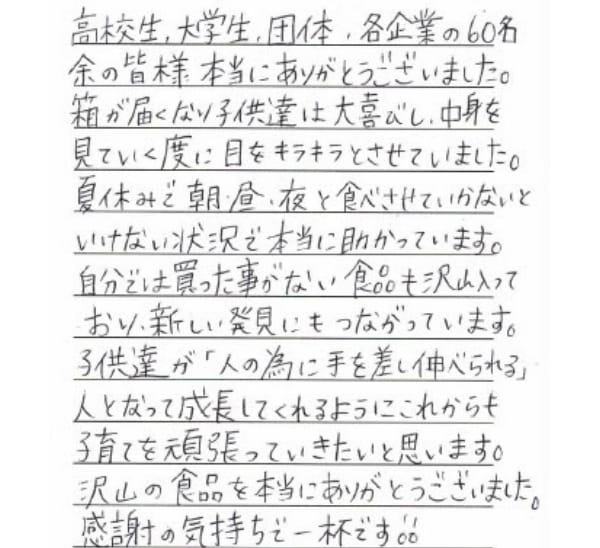 高校生、大学生、団体、各企業の60名
余の皆様 本当にありがとうございました。
箱が届くなり子供達は大喜びし、中身を
見ていく度に目をキラキラとさせていました。
夏休みで朝・昼・夜と食べさせていかないと
いけない状況で本当に助かっています。
自分では買った事がない食品も沢山入って
おり、新しい発見にもつながっています。
子供達が「人の為に手を差し伸べられる」
人となって成長してくれるようにこれからも
子育てを頑張っていきたいと思います。
沢山の食品を本当にありがとうございました。
感謝の気持ちで一杯です